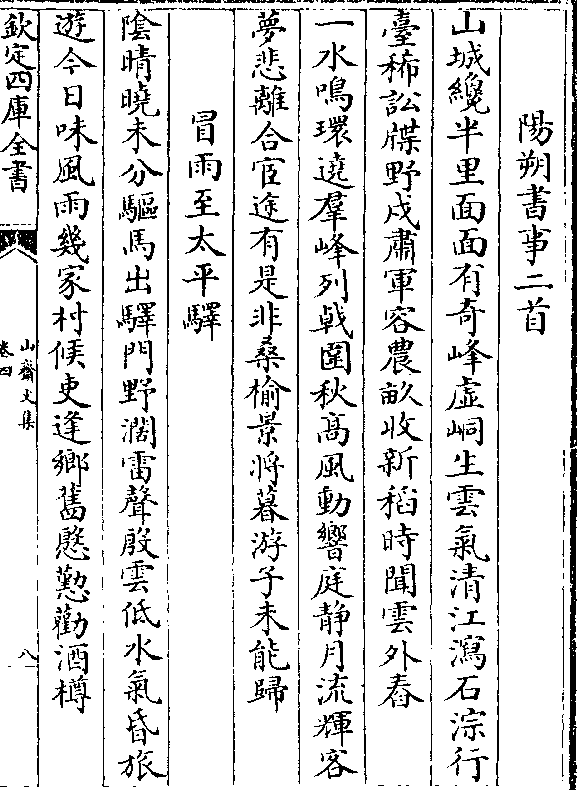 陽朔書事二首
山城纔半里面面有奇峰虛峒生雲氣清江瀉石淙行
臺稀訟牒野戍肅軍容農畝收新稻時聞雲外舂
一水鳴環遶羣峰列戟圍秋高風動響庭静月流輝客
夢悲離合宦途有是非桑榆景將暮游子未能歸
冒雨至太平驛
陰晴曉未分驅馬出驛門野濶雷聲殷雲低水氣昏旅
遊今日味風雨幾家村候吏逢鄉舊慇懃勸酒樽
欽定四庫全書
山齋文集
卷四
八